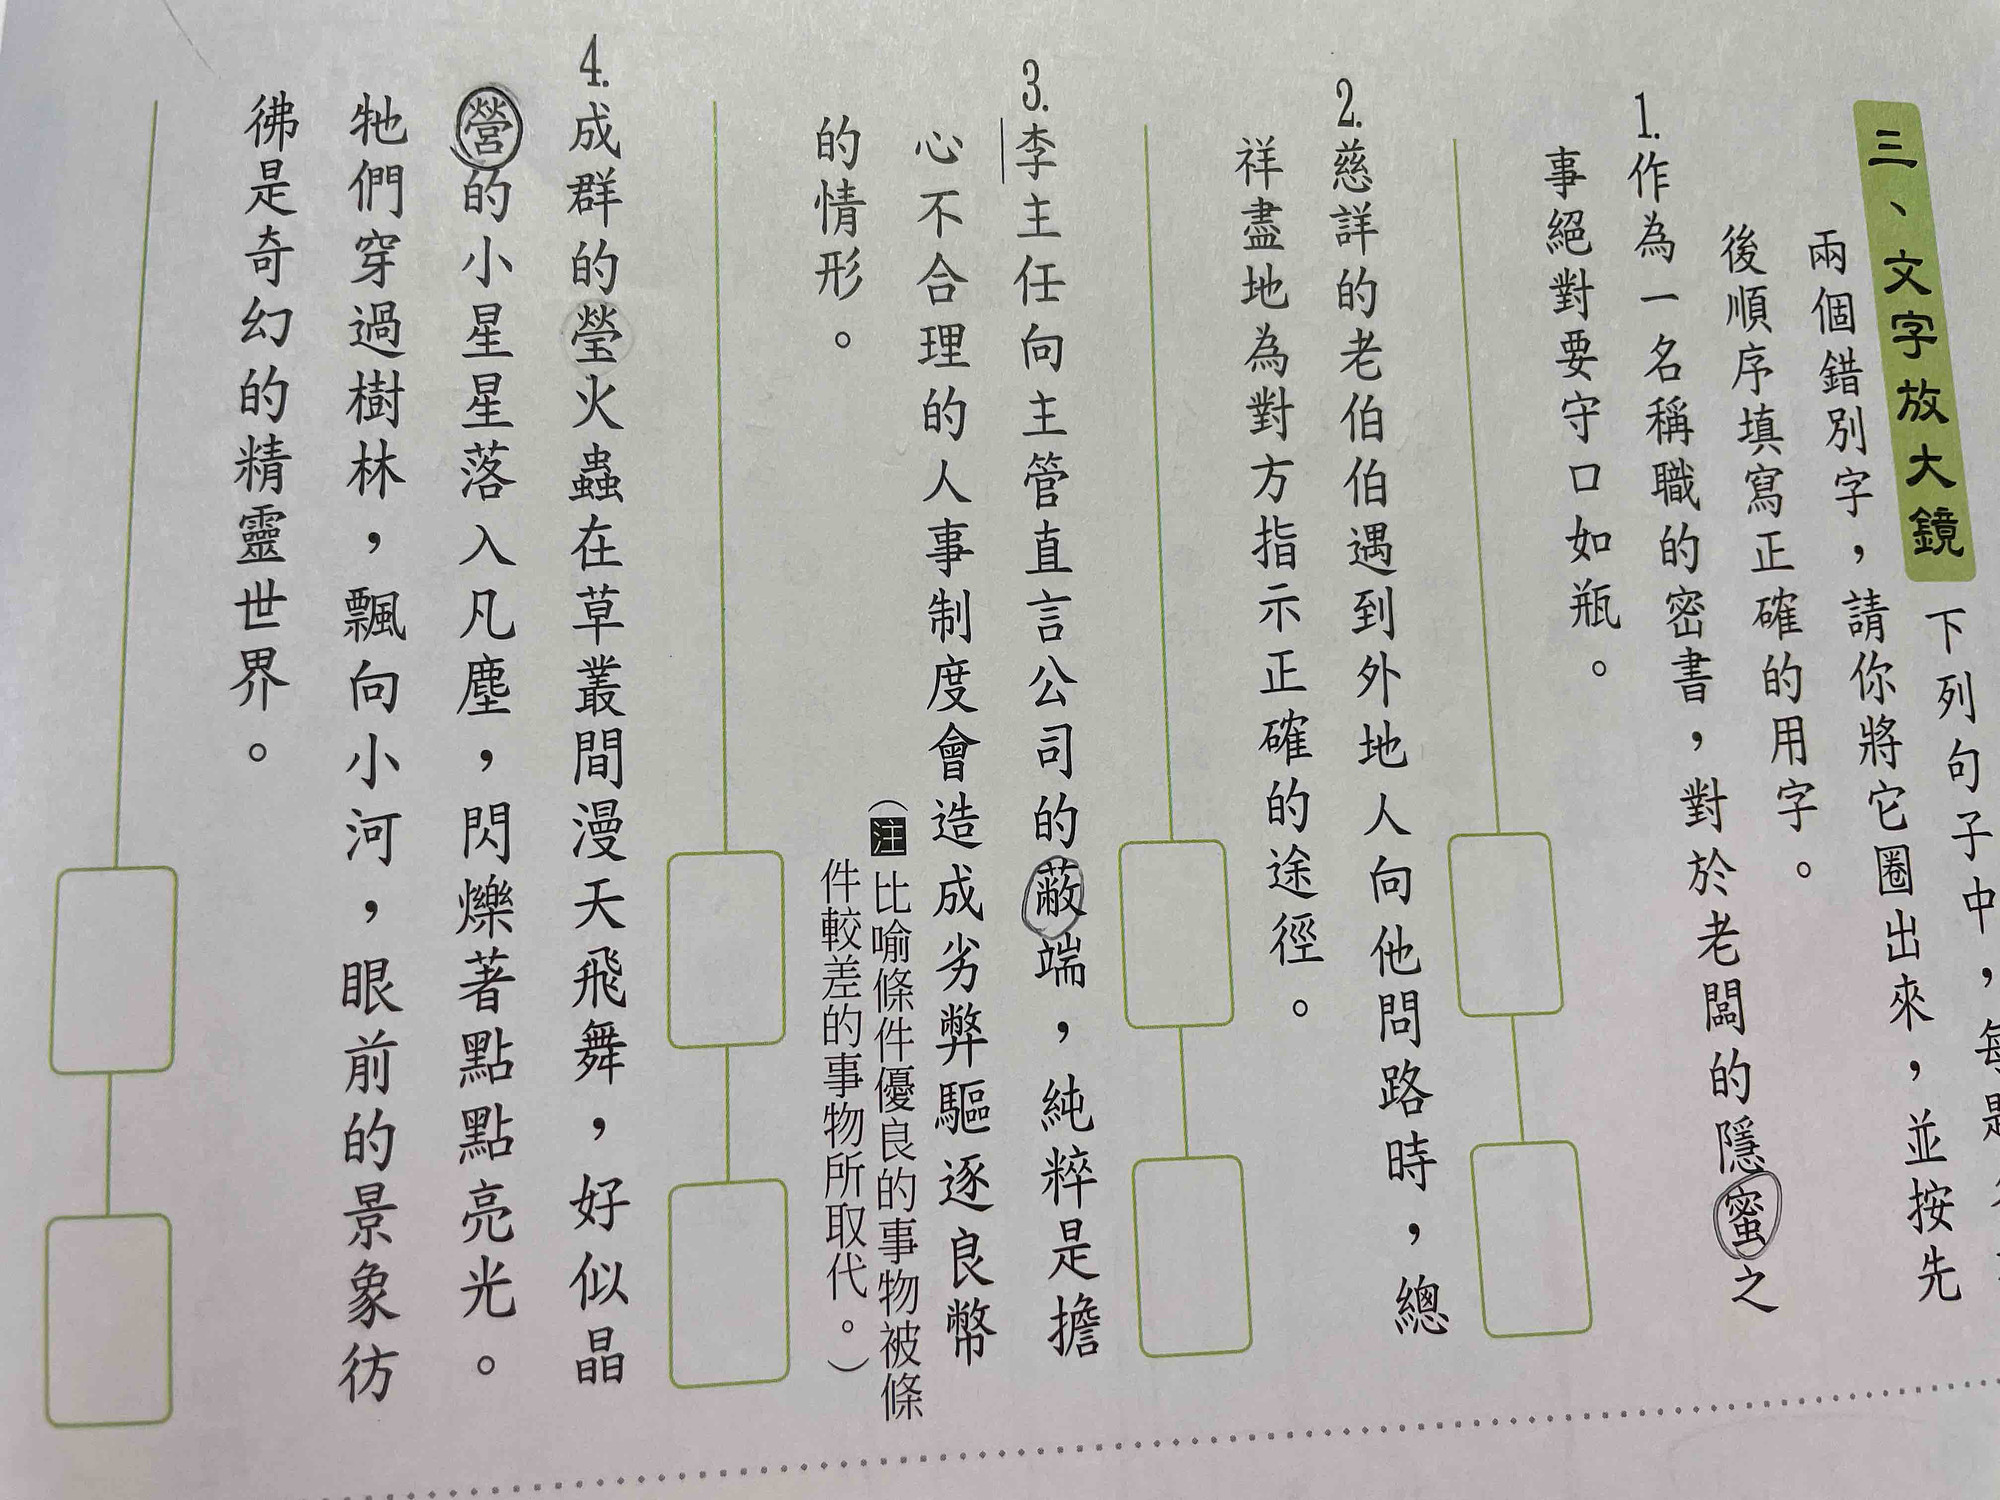 三、文字放大鏡 下列句子中，每題
兩個錯別字，請你將它圈出來，並按先
後順序填寫正確的用字。
1.作為一名稱職的密書，對於老闆的隱蜜之
事絕對要守口如瓶。
2.慈詳的老伯伯遇到外地人向他問路時，總
祥盡地為對方指示正確的途徑。
3.李主任向主管直言公司的蔽端，純粹是擔
心不合理的人事制度會造成劣弊驅逐良幣
的情形。
（注比喻條件優良的事物被條
件較差的事物所取代。）
4.成群的瑩火蟲在草叢間漫天飛舞，好似晶
營的小星星落入凡塵，閃爍著點點亮光。
牠們穿過樹林，飄向小河，眼前的景象彷
彿是奇幻的精靈世界。